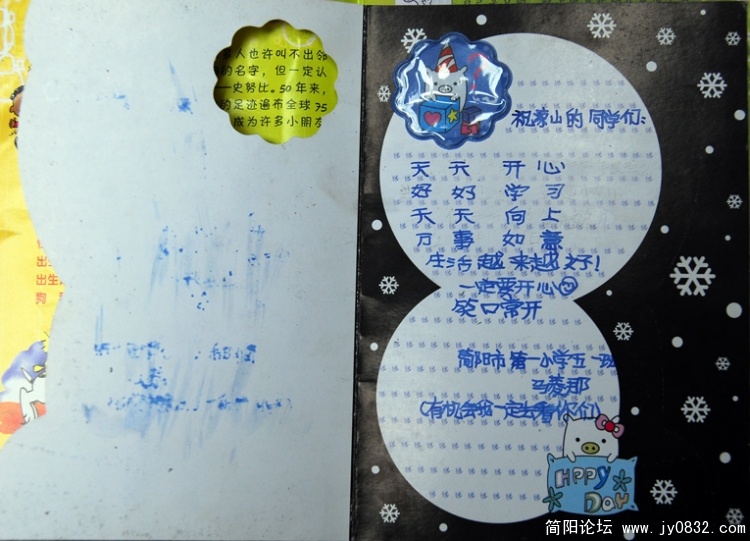 人也许叫不出邻
的名字，但一定认
史努比。50年来，
的足迹遍布全球75
成为许多小朋友
出生
狗
祝蒙山的同学们：
天天 开心
好好 学习
天天 向上
万事 如意
生活越来越好！
一定要开心
笑口常开
简阳市第一小学五一班
(有机会我一定去看你们)
HPPY
DAY
简阳论坛 www.jy0832.com